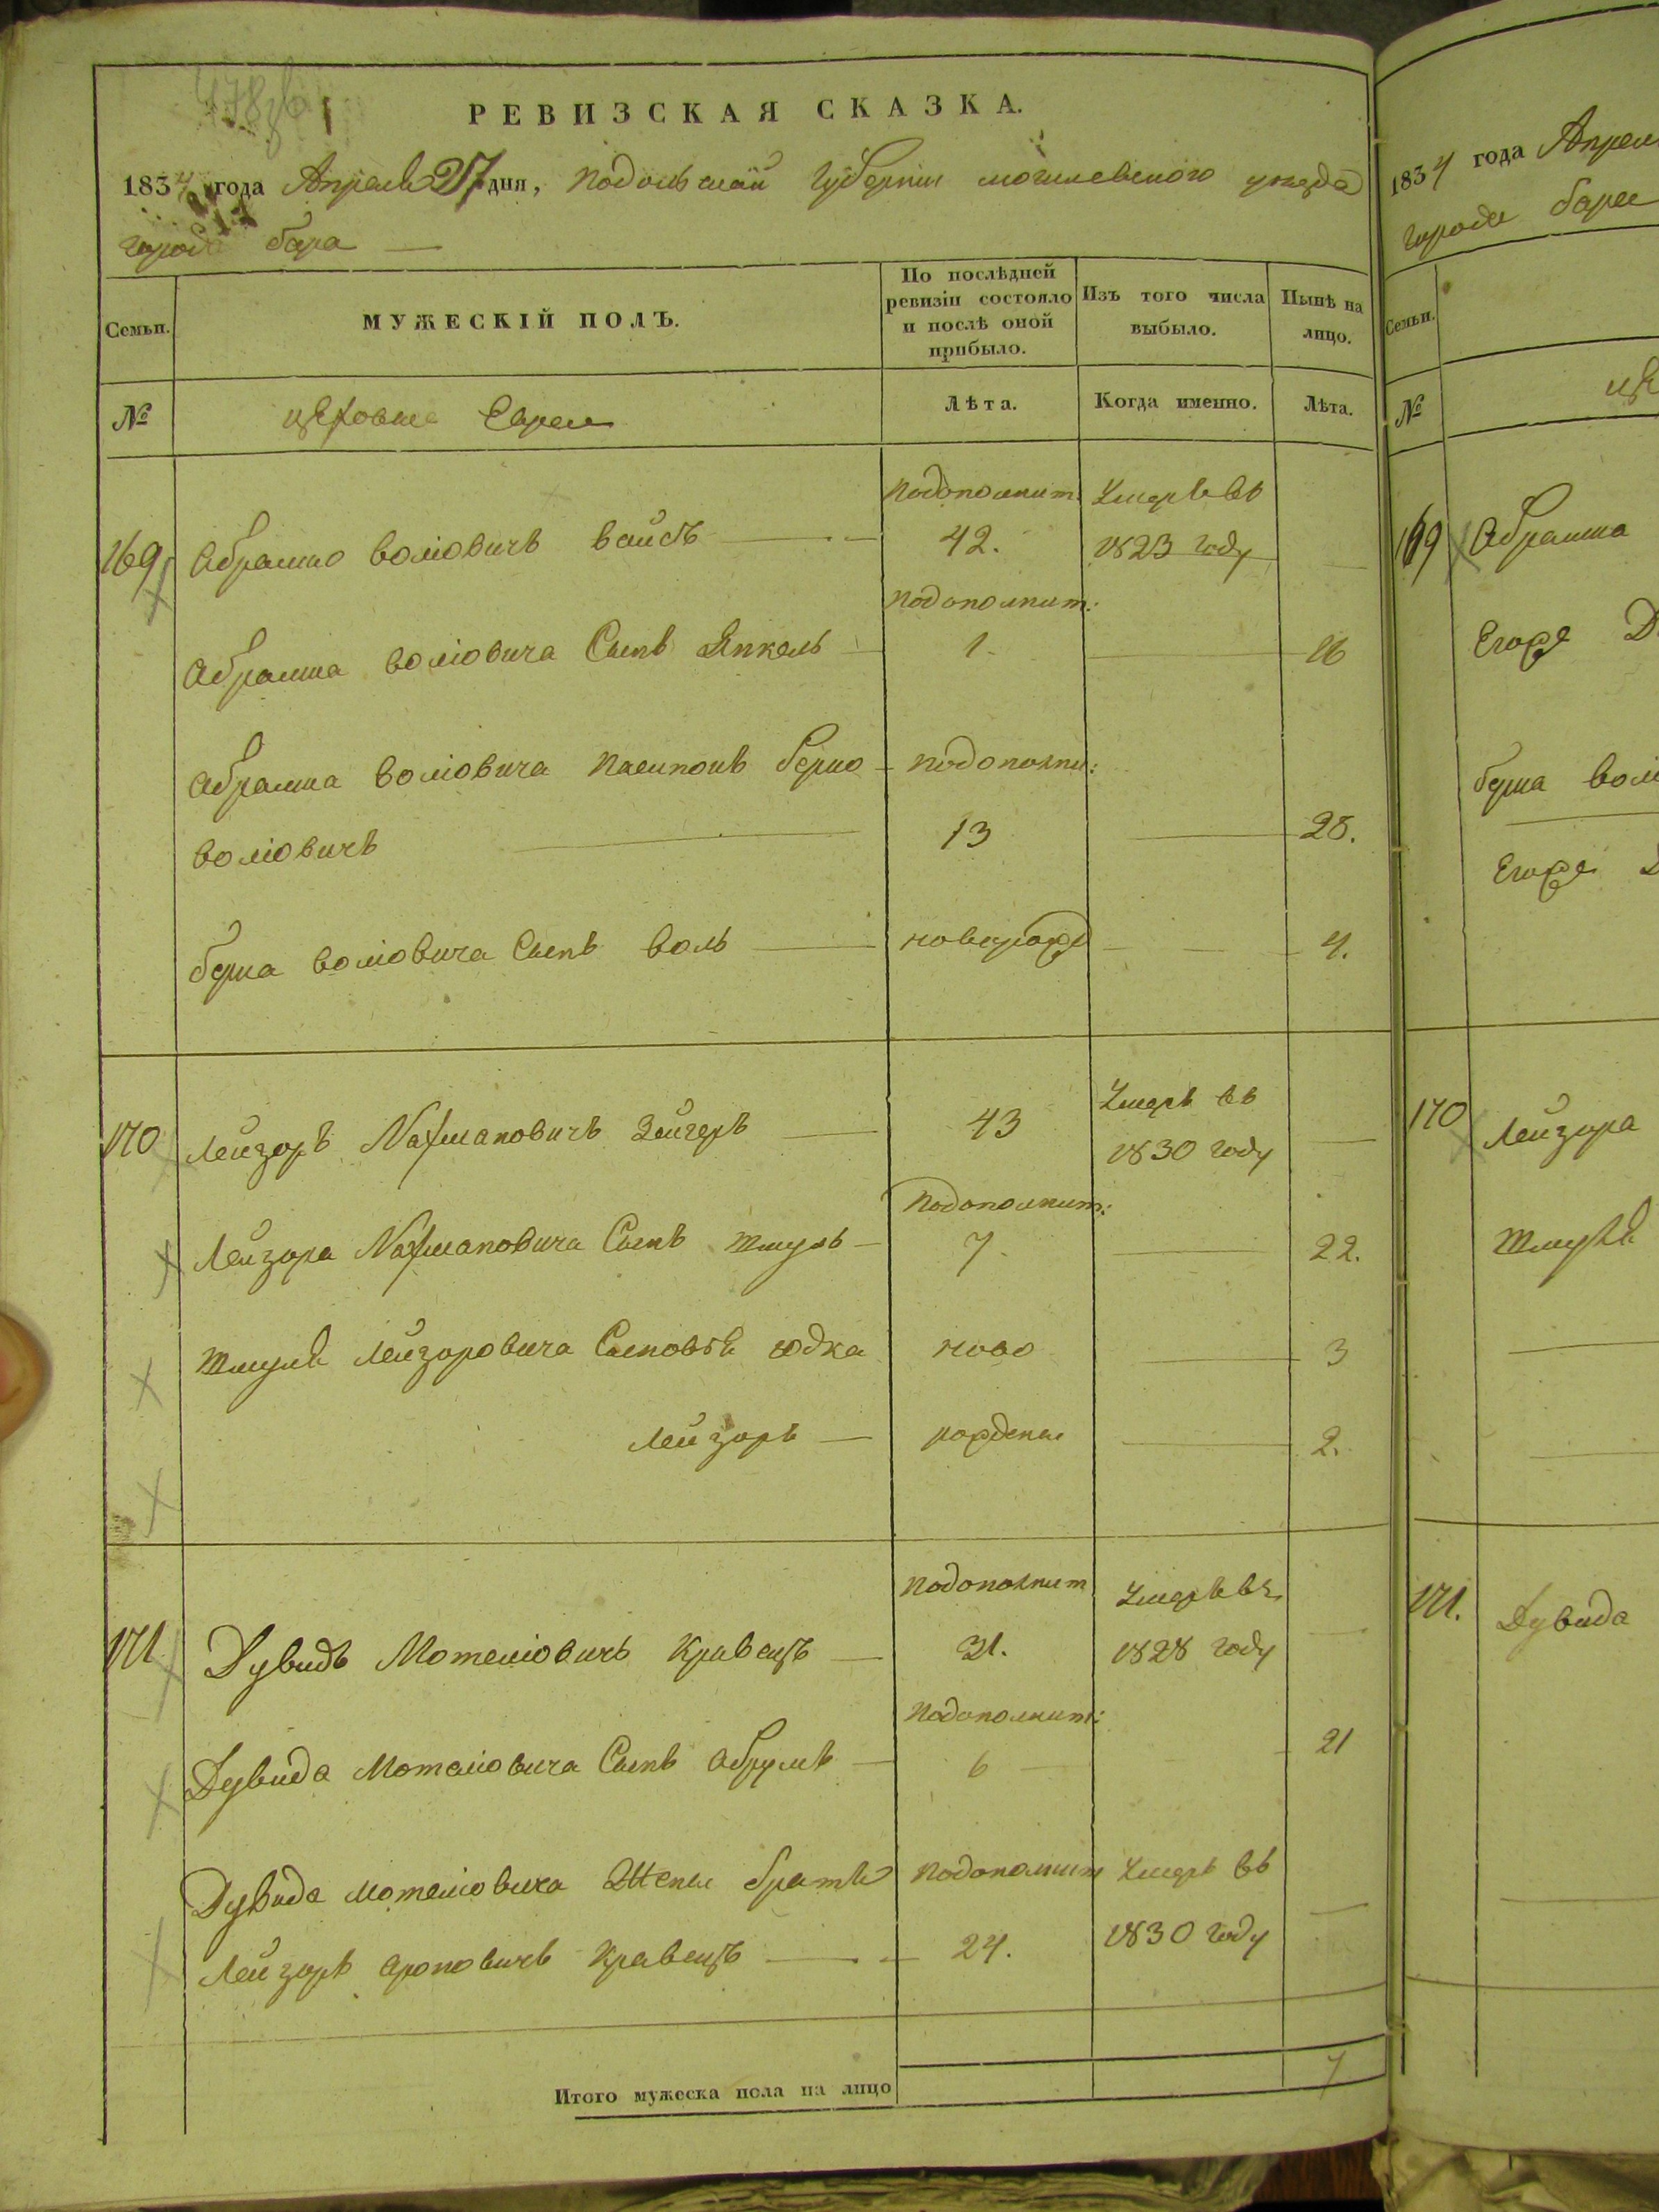 РЕВИЗСКАЯ СКАЗКА.
1834 года Апреля 27 дня, Подольской Губернии могилевского уезда
города бара
Семьи. МУЖЕСКІЙ ПОЛЪ. По послѣдней ревизіи состояло и послѣ оной прибыло. Изъ того числа выбыло. Нынѣ на лицо.
№ цеховые Евреи Лѣта. Когда именно. Лѣта.
Подополнит: Умеръ въ
169 Абрамко волювичъ вайсъ 42. 1823 году
Подополнит:
Абрамка волювича Сынъ Янкель 1. 16
Абрамка волювича берко подополни:
волювичъ 13 28.
берка волювича Сынъ воль новорожд 4.
Умеръ въ
170 Лейзоръ Нахмановичъ Зейгеръ 43 1830 году
Подополнит:
Лейзора Нахмановича Сынъ Шмуль 7. 22.
Шмуля Лейзоровича Сыновья юдка ново 3
Лейзоръ рождены 2.
Подополнит Умеръ въ
171. Дувидъ Мотелювичъ Кравецъ 31. 1828 году
Подополнит:
Дувида Мотелювича Сынъ Абрумъ 6 21
Дувида мотелювича Жены братъ Подополнит Умеръ въ
Лейзоръ Ароновичъ Кравецъ 24. 1830 году
Итого мужеска пола на лицо 7
1834 года Апрел
города бара
Семьи.
№
169 Абрамка
Егоже
берка
Егоже
170 Лейзора
Шмуля
171. Дувида